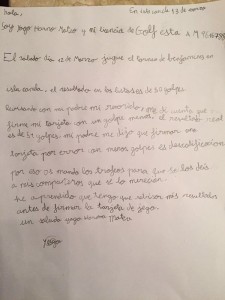 Hola, En isla canela 13 de marzo
Soy Yago Horno Mateo y mi licencia de Golf esta A M
El sabado dia 12 de Marzo jugue el torneo de benjamines en
isla canela. el resultado en los brasos de 50 golpes.
con mi padre mi recorrido, me di cuenta que
firme mi tarjeta con un golpe menos. el resultado real
es 51 golpes. mi padre me dijo que firmar una
tarjeta por error con menos golpes es descalificacion
por eso os mando los trofeos para que se los deis
a mis compañeros que se lo merecen.
he aprendido que tengo que revisar mis resultados
antes de firmar la tarjeta de juego.
un saludo yago Horno Mateo
Yago